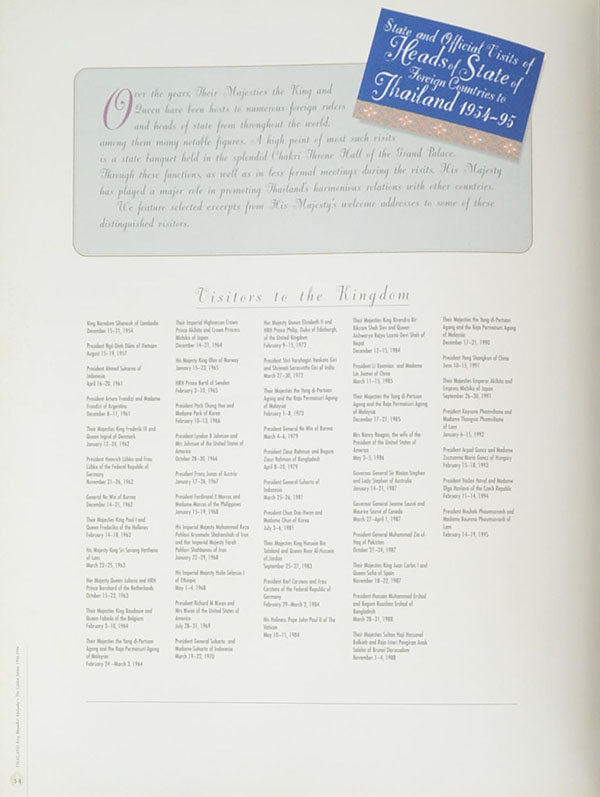 State and Official Visits of
Heads of State of
Foreign Countries to
Thailand 1954~95
Over the years, Their Majesties the King and
Queen have been hosts to numerous foreign rulers
and heads of state from throughout the world,
among them many notable figures. A high point of most such visits
is a state banquet held in the splendid Chakri Throne Hall of the Grand Palace.
Through these functions, as well as in less formal meetings during the visits, His Majesty
has played a major role in promoting Thailand's harmonious relations with other countries.
We feature selected excerpts from His Majesty's welcome addresses to some of these
distinguished visitors.
Visitors to the Kingdom
King Norodom Sihanouk of Cambodia
December 15-21, 1954
President Ngô Dinh Diêm of Vietnam
August 15-19, 1957
President Ahmed Sukarno of
Indonesia
April 16-20, 1961
President Arturo Frondizi and Madame
Frondizi of Argentina
December 8-11, 1961
Their Majesties King Frederik IX and
Queen Ingrid of Denmark
January 12-24, 1962
President Heinrich Lübke and Frau
Lübke of the Federal Republic of
Germany
November 21-26, 1962
General Ne Win of Burma
December 14-21, 1962
Their Majesties King Paul I and
Queen Frederika of the Hellenes
February 14-18, 1963
His Majesty King Sri Savang Vatthana
of Laos
March 22-25, 1963
Her Majesty Queen Juliana and HRH
Prince Bernhard of the Netherlands
October 15-22, 1963
Their Majesties King Baudouin and
Queen Fabiola of the Belgians
February 3-10, 1964
Their Majesties the Yang di-Pertuan
Agong and the Raja Permaisuri Agong
of Malaysia
February 24 -March 3, 1964
Their Imperial Highnesses Crown
Prince Akihito and Crown Princess
Michiko of Japan
December 14-21, 1964
His Majesty King Olav of Norway
January 15-23, 1965
HRH Prince Bertil of Sweden
February 2-10, 1965
President Park Chung Hee and
Madame Park of Korea
February 10-12, 1966
President Lyndon B Johnson and
Mrs Johnson of the United States of
America
October 28-30, 1966
President Franz Jonas of Austria
January 17-26, 1967
President Ferdinand E Marcos and
Madame Marcos of the Philippines
January 15-19, 1968
His Imperial Majesty Muhammad Reza
Pahlavi Aryamehr Shahanshah of Iran
and Her Imperial Majesty Farah
Pahlavi Shahbanou of Iran
January 22-29, 1968
His Imperial Majesty Haile Selassie I
of Ethiopia
May 1-4, 1968
President Richard M Nixon and
Mrs Nixon of the United States of
America
July 28-31, 1969
President General Suharto and
Madame Suharto of Indonesia
March 19-22, 1970
Her Majesty Queen Elizabeth II and
HRH Prince Philip, Duke of Edinburgh,
of the United Kingdom
February 9-15, 1972
President Shri Varahagiri Venkata Giri
and Shrimati Saraswathi Giri of India
March 27-30, 1972
Their Majesties the Yang di-Pertuan
Agong and the Raja Permaisuri Agong
of Malaysia
February 1-8, 1973
President General Ne Win of Burma
March 4-6, 1979
President Ziaur Rahman and Begum
Ziaur Rahman of Bangladesh
April 8-10, 1979
President General Suharto of
Indonesia
March 25-26, 1981
President Chun Doo Hwan and
Madame Chun of Korea
July 3-6, 1981
Their Majesties King Hussein Bin
Talaland and Queen Noor Al-Hussein
of Jordan
September 25-27, 1983
President Karl Carstens and Frau
Carstens of the Federal Republic of
Germany
February 29-March 2, 1984
His Holiness Pope John Paul II of The
Vatican
May 10-11, 1984
Their Majesties King Birendra Bir
Bikram Shah Dev and Queen
Aishwarya Rajya Laxmi Devi Shah of
Nepal
December 12-15, 1984
President Li Xiannian and Madame
Lin Jiamei of China
March 11-15, 1985
Their Majesties the Yang di-Pertuan
Agong and the Raja Permaisuri Agong
of Malaysia
December 17-21, 1985
Mrs Nancy Reagan, the wife of the
President of the United States of
America
May 3-5, 1986
Governor General Sir Ninian Stephen
and Lady Stephen of Australia
January 14-21, 1987
Governor General Jeanne Sauvé and
Maurice Sauvé of Canada
March 27-April 1, 1987
President General Muhammad Zia-ul-
Haq of Pakistan
October 21-24, 1987
Their Majesties King Juan Carlos I and
Queen Sofia of Spain
November 18-22, 1987
President Hussain Muhammad Ershad
and Begum Raushan Ershad of
Bangladesh
March 28-31, 1988
Their Majesties Sultan Haji Hassanal
Bolkiah and Raja Isteri Pengiran Anak
Saleha of Brunei Darussalam
November 1-4, 1988
Their Majesties the Yang di-Pertuan
Agong and the Raja Permaisuri Agong
of Malaysia
December 17-21, 1990
President Yang Shangkun of China
June 10-15, 1991
Their Majesties Emperor Akihito and
Empress Michiko of Japan
September 26-30, 1991
President Kaysone Phomvihane and
Madame Thongvin Phomvihane
of Laos
January 6-15, 1992
President Arpad Goncz and Madame
Zsuzsanna Maria Goncz of Hungary
February 15-18, 1993
President Vaclav Havel and Madame
Olga Havlova of the Czech Republic
February 11-14, 1994
President Nouhak Phoumsavanh and
Madame Bounma Phoumsavanh of
Laos
February 14-19, 1995
54